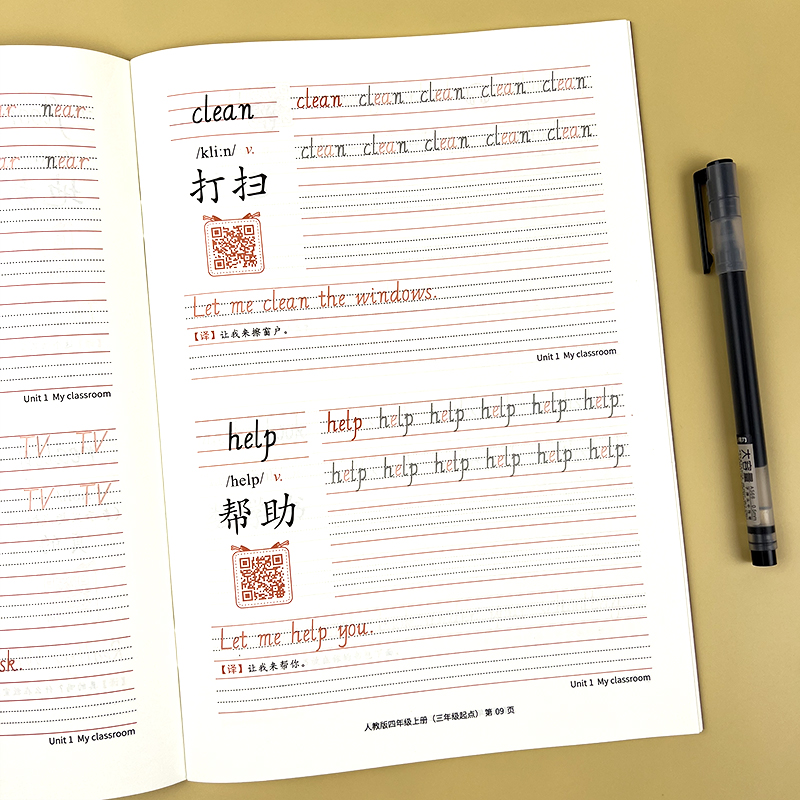 ar near
ar near
Unit 1 My classroom
TV TV
TV TV
sk.
Unit 1 My classroom
clean
clean clean clean clean clean
/kli:n/ v.
clean clean clean clean clean
打扫
Let me clean the windows.
【译】让我来擦窗户。
Unit 1 My classroom
help
help help help help help help
/help/ v.
help help help help help help
帮助
Let me help you.
【译】让我来帮你。
Unit 1 My classroom
人教版四年级上册（三年级起点） 第 09 页
大容量